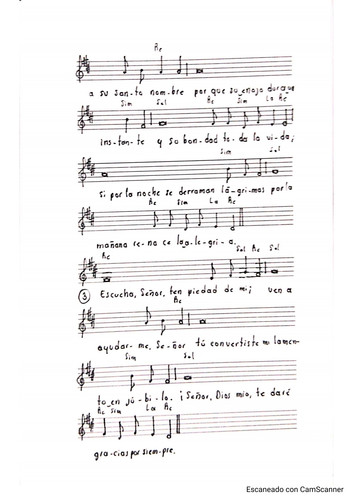 Re
a su san-to nom-bre por que su enojo dura un
Sim Sol Re Sim La Re
ins-tan-te y su bondad to-da la vi-da;
Sim Sol
si por la noche se derraman lá-gri-mas por la
Re Sim La Re
mañana re-na ce la a-le-grí-a.
Re Sol Re Sol
3 Escucha, Señor, ten piedad de mí; ven a
Re
ayudar-me. Se-ñor tú convertiste mi lamen-
Sim Sol
to en jú-bi-lo. ¡Señor, Dios mío, te daré
Re Sim La Re
gra-cias por siem-pre.
Escaneado con CamScanner